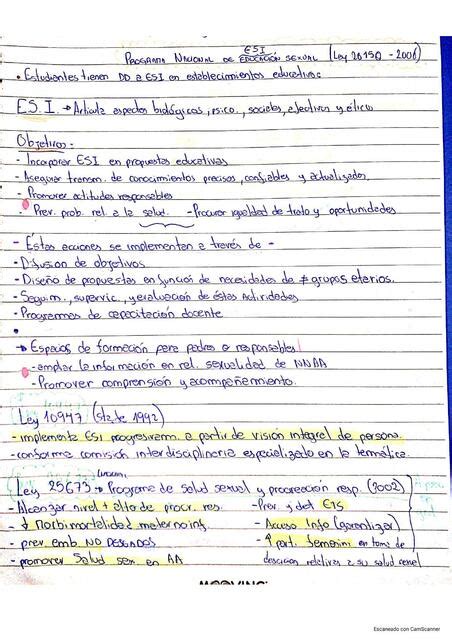 ESI
PROGRAMA NACIONAL DE EDUCACIÓN SEXUAL (Ley 26150 - 2006)
• Estudiantes tienen DD a ESI en establecimientos educativos.
E.S.I. → Articula aspectos biológicos, psico., sociales, afectivos y éticos
Objetivos:
- Incorporar ESI en propuestas educativas
- Asegurar transm. de conocimientos precisos, confiables y actualizados.
- Promover actitudes responsables
- Prev. prob. rel. a la salud. - Procurar igualdad de trato y oportunidades
- Éstas acciones se implementan a través de -
- Difusion de objetivos.
- Diseño de propuestas en función de necesidades de ≠ grupos etarios.
- Seguim., supervic., y evaluacion de éstas Actividades
- Programas de capacitación docente
•
→ Espacios de formación para padres o responsables
- ampliar la informacion en rel. sexualidad de NNAA
- Promover comprension y acompañamiento.
Ley 10947 (sta. fe 1992)
- implementa ESI progresivam. a partir de visión integral de persona.
- conforma comisión interdisciplinaria especializada en la temática.
Ley 25673 → Programa de salud sexual y procreación resp. (2002)
- Alcanzar nivel + alto de procr. res. - Prev. y det ETS
- ↓ morbimortalidad materno inf. - Acceso Info (garantizar)
- prev. emb. NO DESEADOS - ↑ part. femenini en toma de
- promover Salud sex. en AA decisiones relativas a su salud sexual
MOOVING
Escaneado con CamScanner